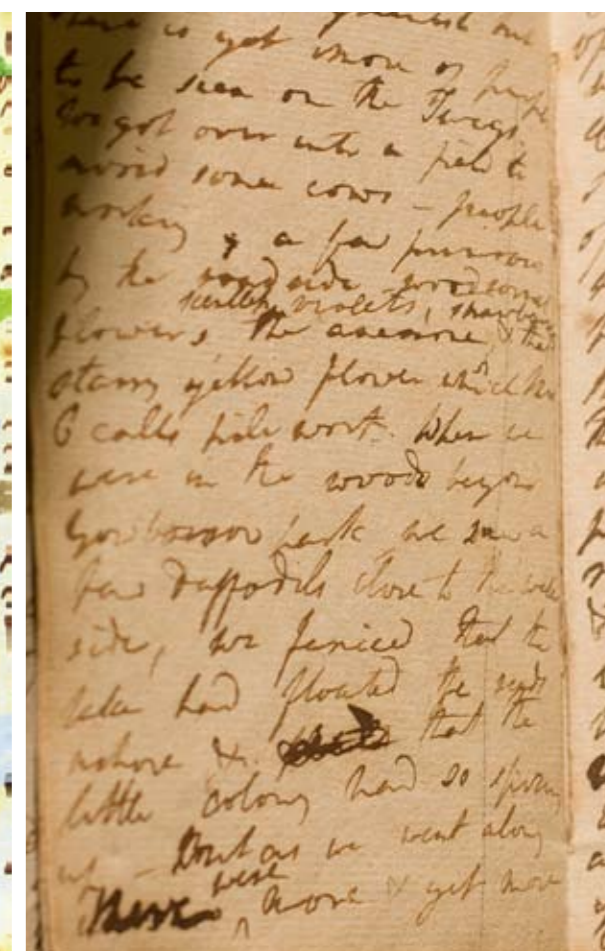 there is yet more of purple
to be seen on the Twigs
We got over into a field to
avoid some cows – people
working, & a few primroses
by the roadside, woodsorrel
scentless violets, strawberries
flowers, the anemone, & that
starry yellow flower which Mrs
C calls pile wort. When we
were in the woods beyond
Gowbarrow park we saw a
few Daffodils close to the water
side, we fancied that the
lake had floated the seeds
ashore & that the
little colony had so sprung
up – But as we went along
there were more & yet more